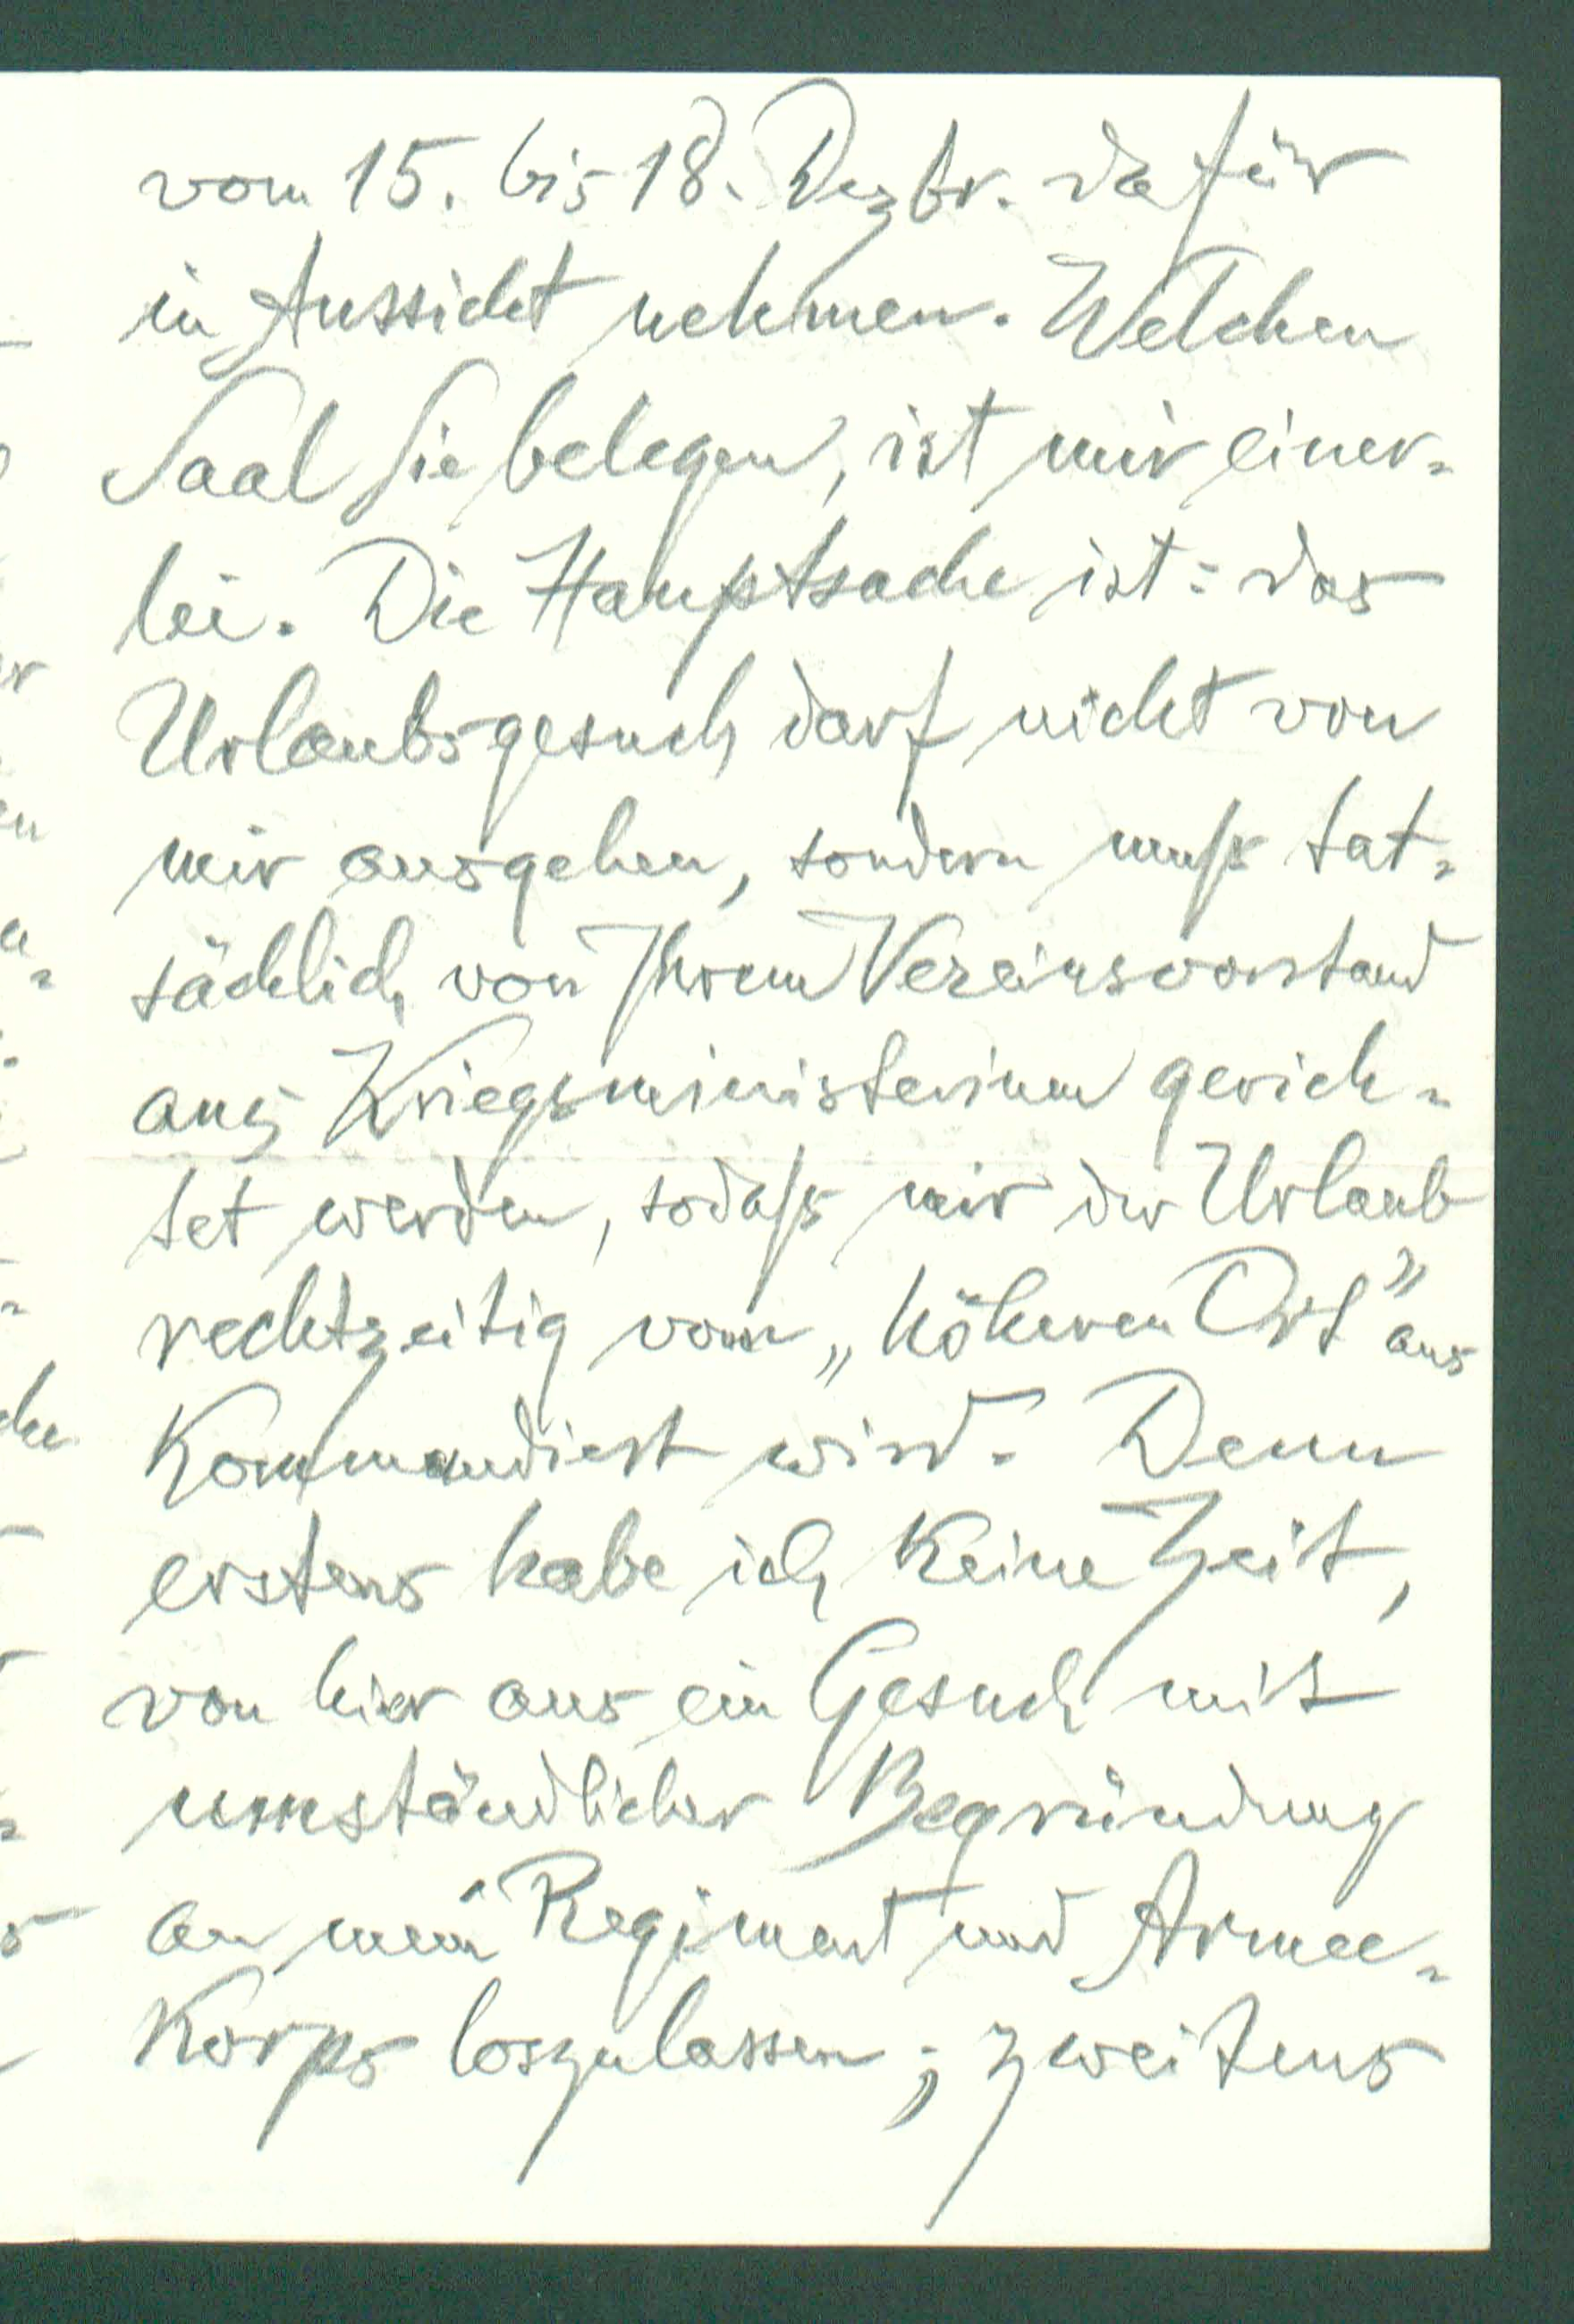 vom 15. bis 18. Dezbr. dafür
in Aussicht nehmen. Welchen
Saal Sie belegen, ist mir einer-
lei. Die Hauptsache ist: das
Urlaubsgesuch darf nicht von
mir ausgehen, sondern muß tat-
sächlich von Ihrem Vereinsvorstand
ans Kriegsministerium gerich-
tet werden, sodaß mir der Urlaub
rechtzeitig vom „höheren Ort” aus
kommandiert wird. Denn
erstens habe ich keine Zeit,
von hier aus ein Gesuch mit
umständlicher Begründung
an mein Regiment und Armee-
Korps loszulassen; zweitens